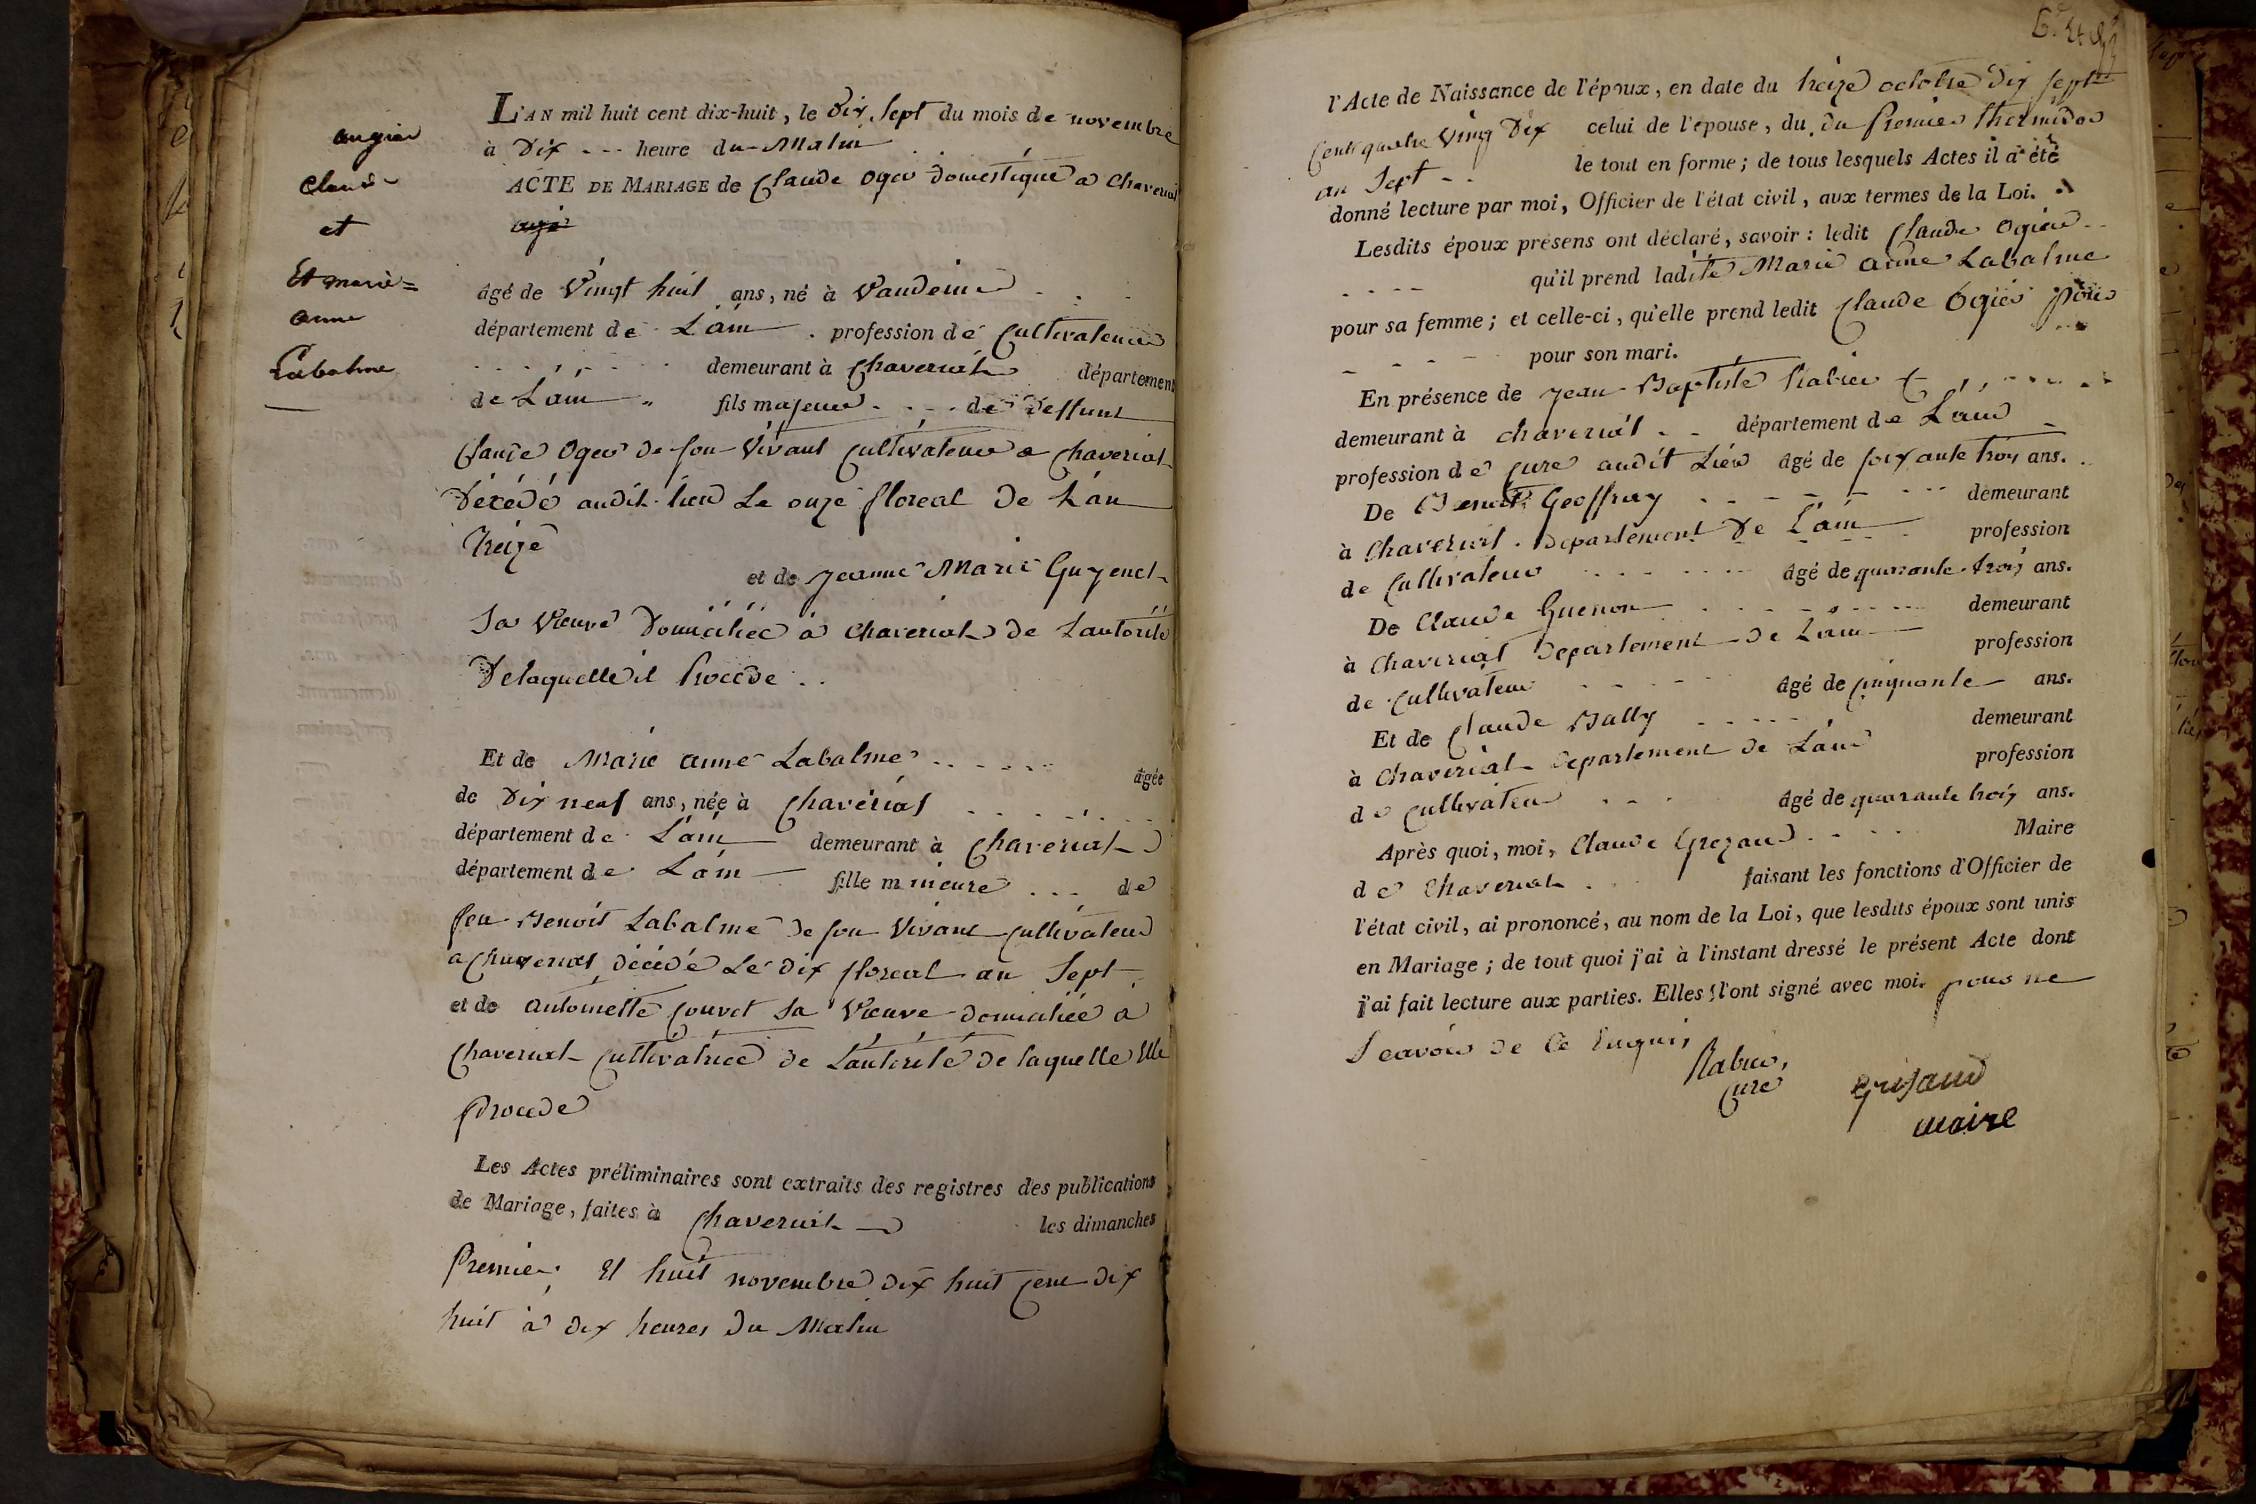 augier
Claude
et
Et marie=
anne
Labalme
L'AN mil huit cent dix-huit, le Dix Sept du mois de novembre
à Dix --- heure du Matin
ACTE DE MARIAGE de Claude Ogier domestique a Chaveriat
âgé de Vingt huit ans, né à Vandeins
département de L'ain profession de Cultivateur
demeurant à Chaveriat département
de L'ain fils majeur de deffunt
Claude Ogier de son Vivant Cultivateur a Chaveriat
Décédé audit lieu Le onze floreal de L'an
treize
et de Jeanne Marie Guyenet
Sa Veuve Domiciliée à Chaveriat de Lautorité
De laquelle il Procède
Et de Marie anne Labalme âgée
de Dix neuf ans, née à Chavériat
département de L'ain demeurant à Chaveriat
département de L'ain fille mineure de
feu Benoit Labalme de son Vivant Cultivateur
a Chaveriat décédé Le dix floreal an Sept
et de antoinette Couvet Sa Veuve domiciliée à
Chaveriat Cultivatrice de L'autorité de laquelle Elle
procede
Les Actes préliminaires sont extraits des registres des publications
de Mariage, faites à Chaveriat les dimanches
Premier Et huit novembre dix huit Cent dix
huit à dix heures du Matin
l'Acte de Naissance de l'époux, en date du treize octobre Dix sept
Cent quatre Ving Dix celui de l'épouse, du du Premier thermidor
an Sept -- le tout en forme; de tous lesquels Actes il a été
donné lecture par moi, Officier de l'état civil, aux termes de la Loi.
Lesdits époux présens ont déclaré, savoir: ledit Claude Ogier
qu'il prend ladite Marie anne Labalme
pour sa femme; et celle-ci, qu'elle prend ledit Claude Ogier pour
pour son mari.
En présence de Jean Baptiste Rabuer
demeurant à chaveriat département de L'ain
profession de Curé audit Lieu âgé de soixante trois ans.
De Benoit Geoffray demeurant
à Chaveriat. Departement De L'ain profession
de Cultivateur âgé de quarante trois ans.
De Claude Guenon demeurant
à Chaveriat Departement de L'ain profession
de Cultivateur âgé de Cinquante ans.
Et de Claude Bally demeurant
à Chaveriat Departement de L'ain profession
de Cultivateur âgé de quarante trois ans.
Après quoi, moi, Claude Grezaud Maire
de Chaveriat faisant les fonctions d'Officier de
l'état civil, ai prononcé, au nom de la Loi, que lesdits époux sont unis
en Mariage; de tout quoi j'ai à l'instant dressé le présent Acte dont
j'ai fait lecture aux parties. Elles l'ont signé avec moi. pour ne
Scavoir de Ce Enquis
Rabuer,
Curé
Grisaud
maire